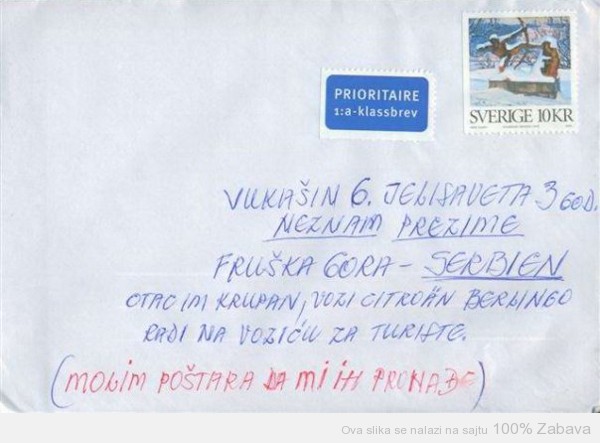 SVERIGE 10KR
PRIORITAIRE
1:a-klassbrev
VUKAŠIN 6. JELISAVETA 3 GOD.
NEZNAM PREZIME
FRUŠKA GORA - SERBIEN
OTAC IM KRUPAN, VOZI CITROÄN BERLINGO
RADI NA VOZIĆU ZA TURISTE.
(MOLIM POŠTARA DA MI IH PRONAĐE)
Ova slika se nalazi na sajtu 100% Zabava